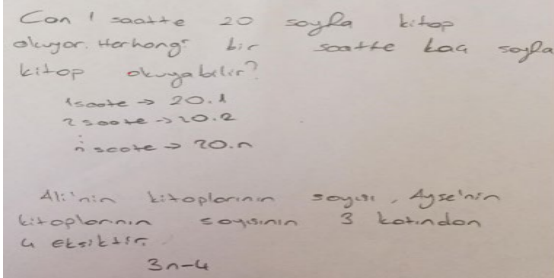 Can 1 saatte 20 sayfa kitap
okuyor. Herhangi bir saatte kaç sayfa
kitap okuyabilir?
1 saate → 20.1
2 saate → 20.2
n saate → 20.n
Ali'nin kitaplarının sayısı, Ayşe'nin
kitaplarının sayısının 3 katından
4 eksiktir.
3n-4